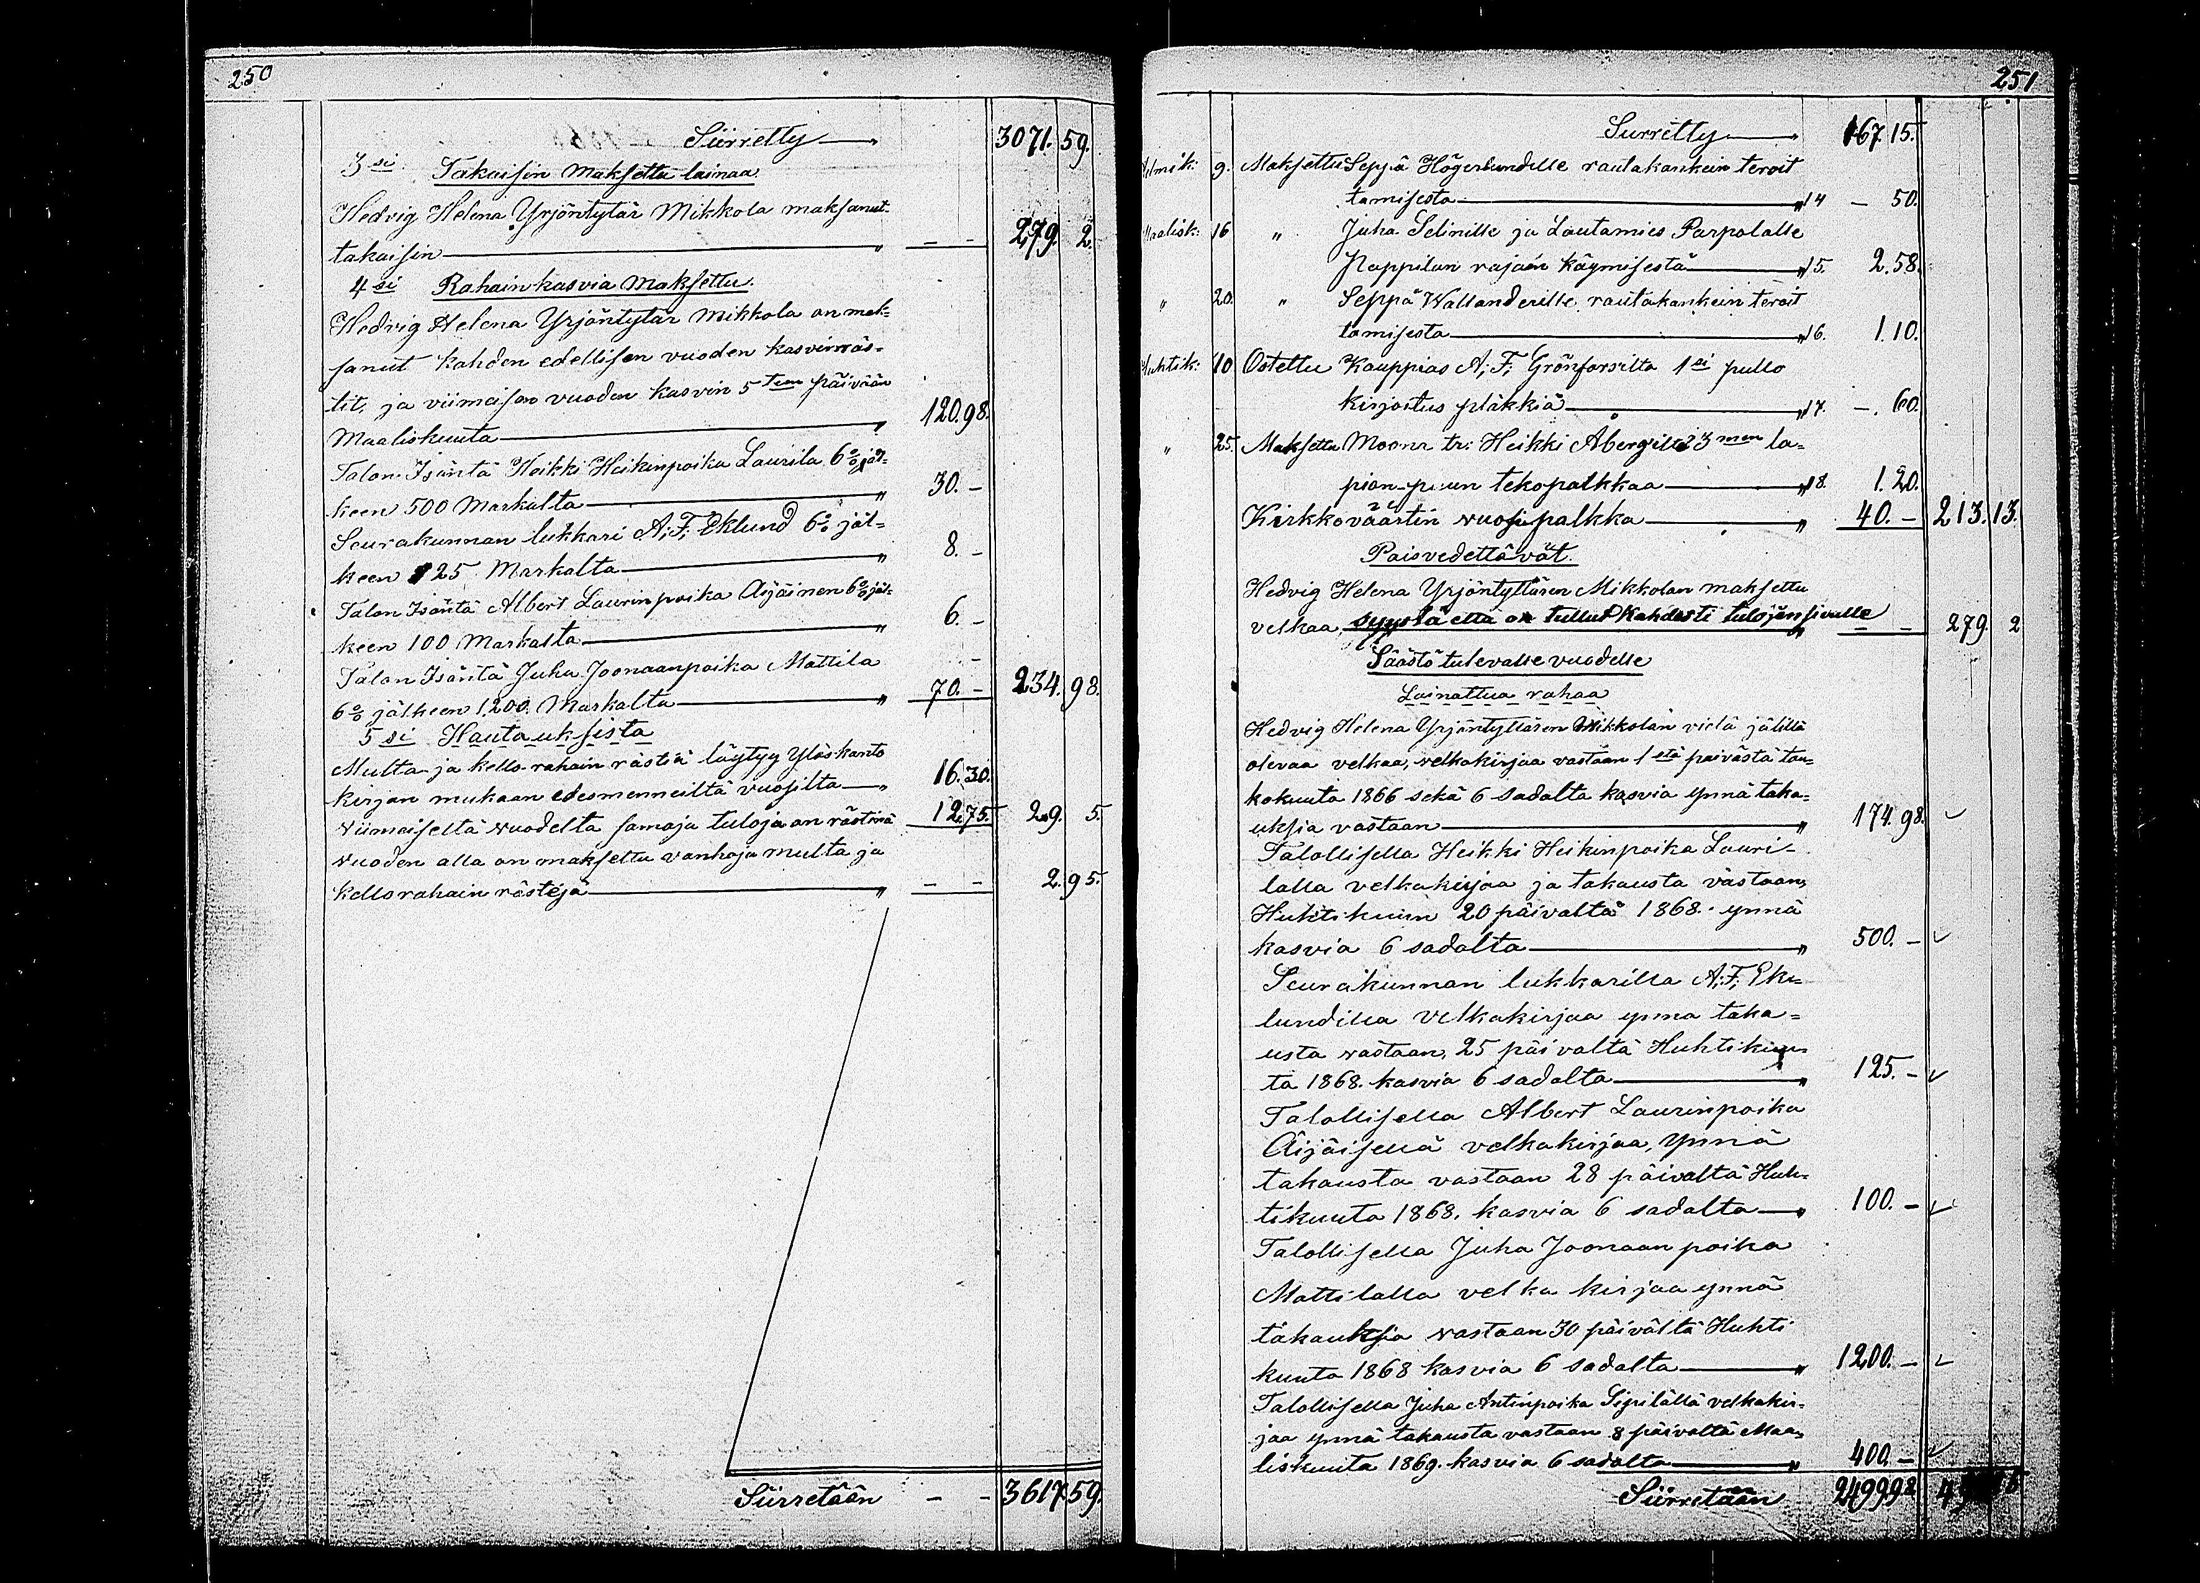 250
Siirretty 3071. 59.
3si Takaisin maksettu lainaa
Hedvig Helena Yrjöntytär Mikkola maksanut
takaisin " — — 279. 2.
4si Rahain kasvia maksettu.
Hedvig Helena Yrjöntytär Mikkola on mak=
sanut kahden edellisen vuoden kasvirräs=
tit, ja viimeisen vuoden kasvin 5ten päivään
Maaliskuuta " 120. 98.
Talon Isäntä Heikki Heikinpoika Laurila 6% jäl=
keen 500 Markalta " 30. —
Seurakunnan lukkari A. F. Eklund 6% jäl=
keen 125 Markalta " 8. —
Talon Isäntä Albert Laurinpoika Äijäinen 6% jäl=
keen 100 Markalta " 6. —
Talon Isäntä Juha Joonaanpoika Mattila
6% jälkeen 1.200. Markalta " 70. — 234. 98.
5si Hautauksista
Multa ja kello rahain rästiä löytyy Ylöskanto
kirjan mukaan edesmenneiltä vuosilta " 16. 30.
viimeiseltä vuodelta samoja tuloja on rästinä 12. 75. 29. 5.
vuoden alla on maksettu vanhoja multa ja
kellorahain rästejä " — — 2. 95.
Siirretään — — 3617 59.
251
Siirretty 167. 15.
Helmik: 9. Maksettu Seppä Högerlundille rautakankein teroit
tamisesta " 14 — 50.
Maalisk: 16 " Juha Selinille ja Lautamies Parpolalle
Pappilan rajain käymisestä " 15. 2. 58.
" 20. " Seppä Wallanderille rautakankein teroit
tamisesta " 16. 1. 10.
Huhtik: 10 Ostettu Kauppias A. F. Grönforsilta 1si pullo
kirjoitus pläkkiä " 17. —. 60.
" 25. Maksettu Moona tr: Heikki Abergille 3men la=
pion-puun tekopalkkaa " 18. 1. 20.
Kirkkoväärtin vuosipalkka " 40. — 213. 13.
Poisvedettävät.
Hedvig Helena Yrjöntyttären Mikkolan maksettu
velkaa, syystä että on tullut kahdesti tulojen sivulle " — — 279. 2
Säästö tulevalle vuodelle
Lainattua rahaa
Hedvig Helena Yrjöntyttären Mikkolan vielä jälillä
olevaa velkaa, velkakirjaa vastaan 1stä päivästä tou=
kokuuta 1866 sekä 6 sadalta kasvia ynnä taka=
uksia vastaan " 174. 98.
Talollisella Heikki Heikinpoika Lauri=
lalla velkakirjaa ja takausta vastaan,
Huhtikuun 20 päivältä 1868. ynnä
kasvia 6 sadalta " 500. —
Seurakunnan lukkarilla A. F. Ek=
lundilla velkakirjaa ynnä taka=
usta vastaan, 25 päivältä Huhtikuu=
ta 1868. kasvia 6 sadalta " 125. —
Talollisella Albert Laurinpoika
Äijäisellä velkakirjaa, ynnä
takausta vastaan 28 päivältä Huh=
tikuuta 1868. kasvia 6 sadalta " 100. —
Talollisella Juha Joonaan poika
Mattilalla velka kirjaa ynnä
takauksia vastaan 30 päivältä Huhti
kuuta 1868 kasvia 6 sadalta " 1200. —
Talollisella Juha Antinpoika Sipilällä velkakir=
jaa ynnä takausta vastaan 8 päivältä Maa=
liskuuta 1869. kasvia 6 sadalta " 400. —
Siirretään 2499 98